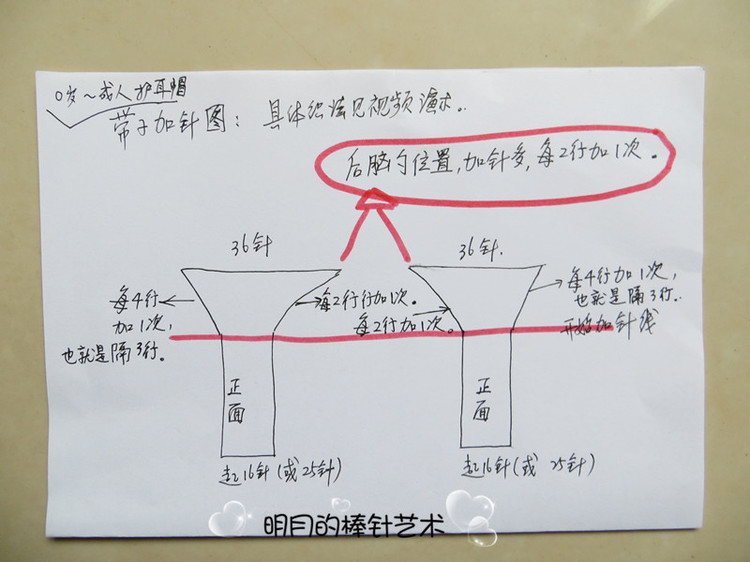 0岁~成人护耳帽
带子加针图：具体织法见视频演示..
后脑勺位置,加针多,每2行加1次。
36针
36针.
每4行
加1次,
也就是隔3行.
每2行行加1次。
每2行加1次。
每4行加1次,
也就是隔3行..
开始加针线
正面
正面
起16针(或25针)
起16针(或 25针)
明月的棒针艺术